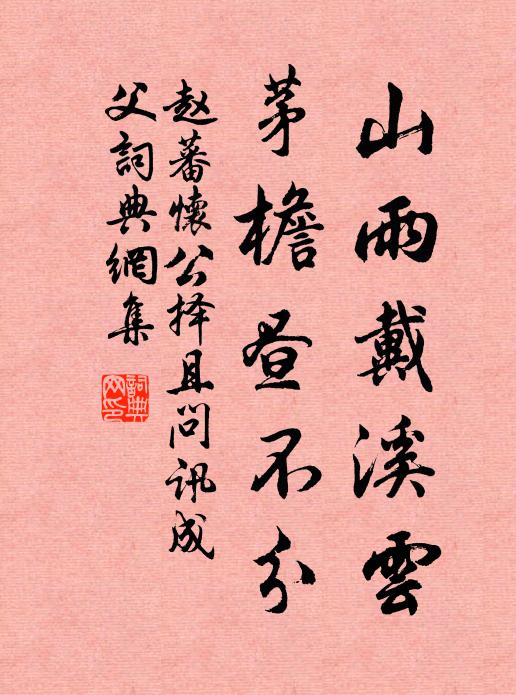 山雨戴溪雲
茅檐昼不分
赵蕃懷公择且问讯成
父詞典網集
詞典網印